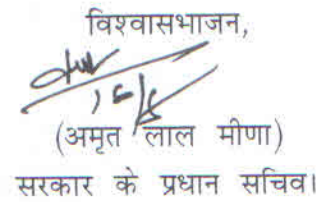 विश्वासभाजन,
(अमृत लाल मीणा)
सरकार के प्रधान सचिव।